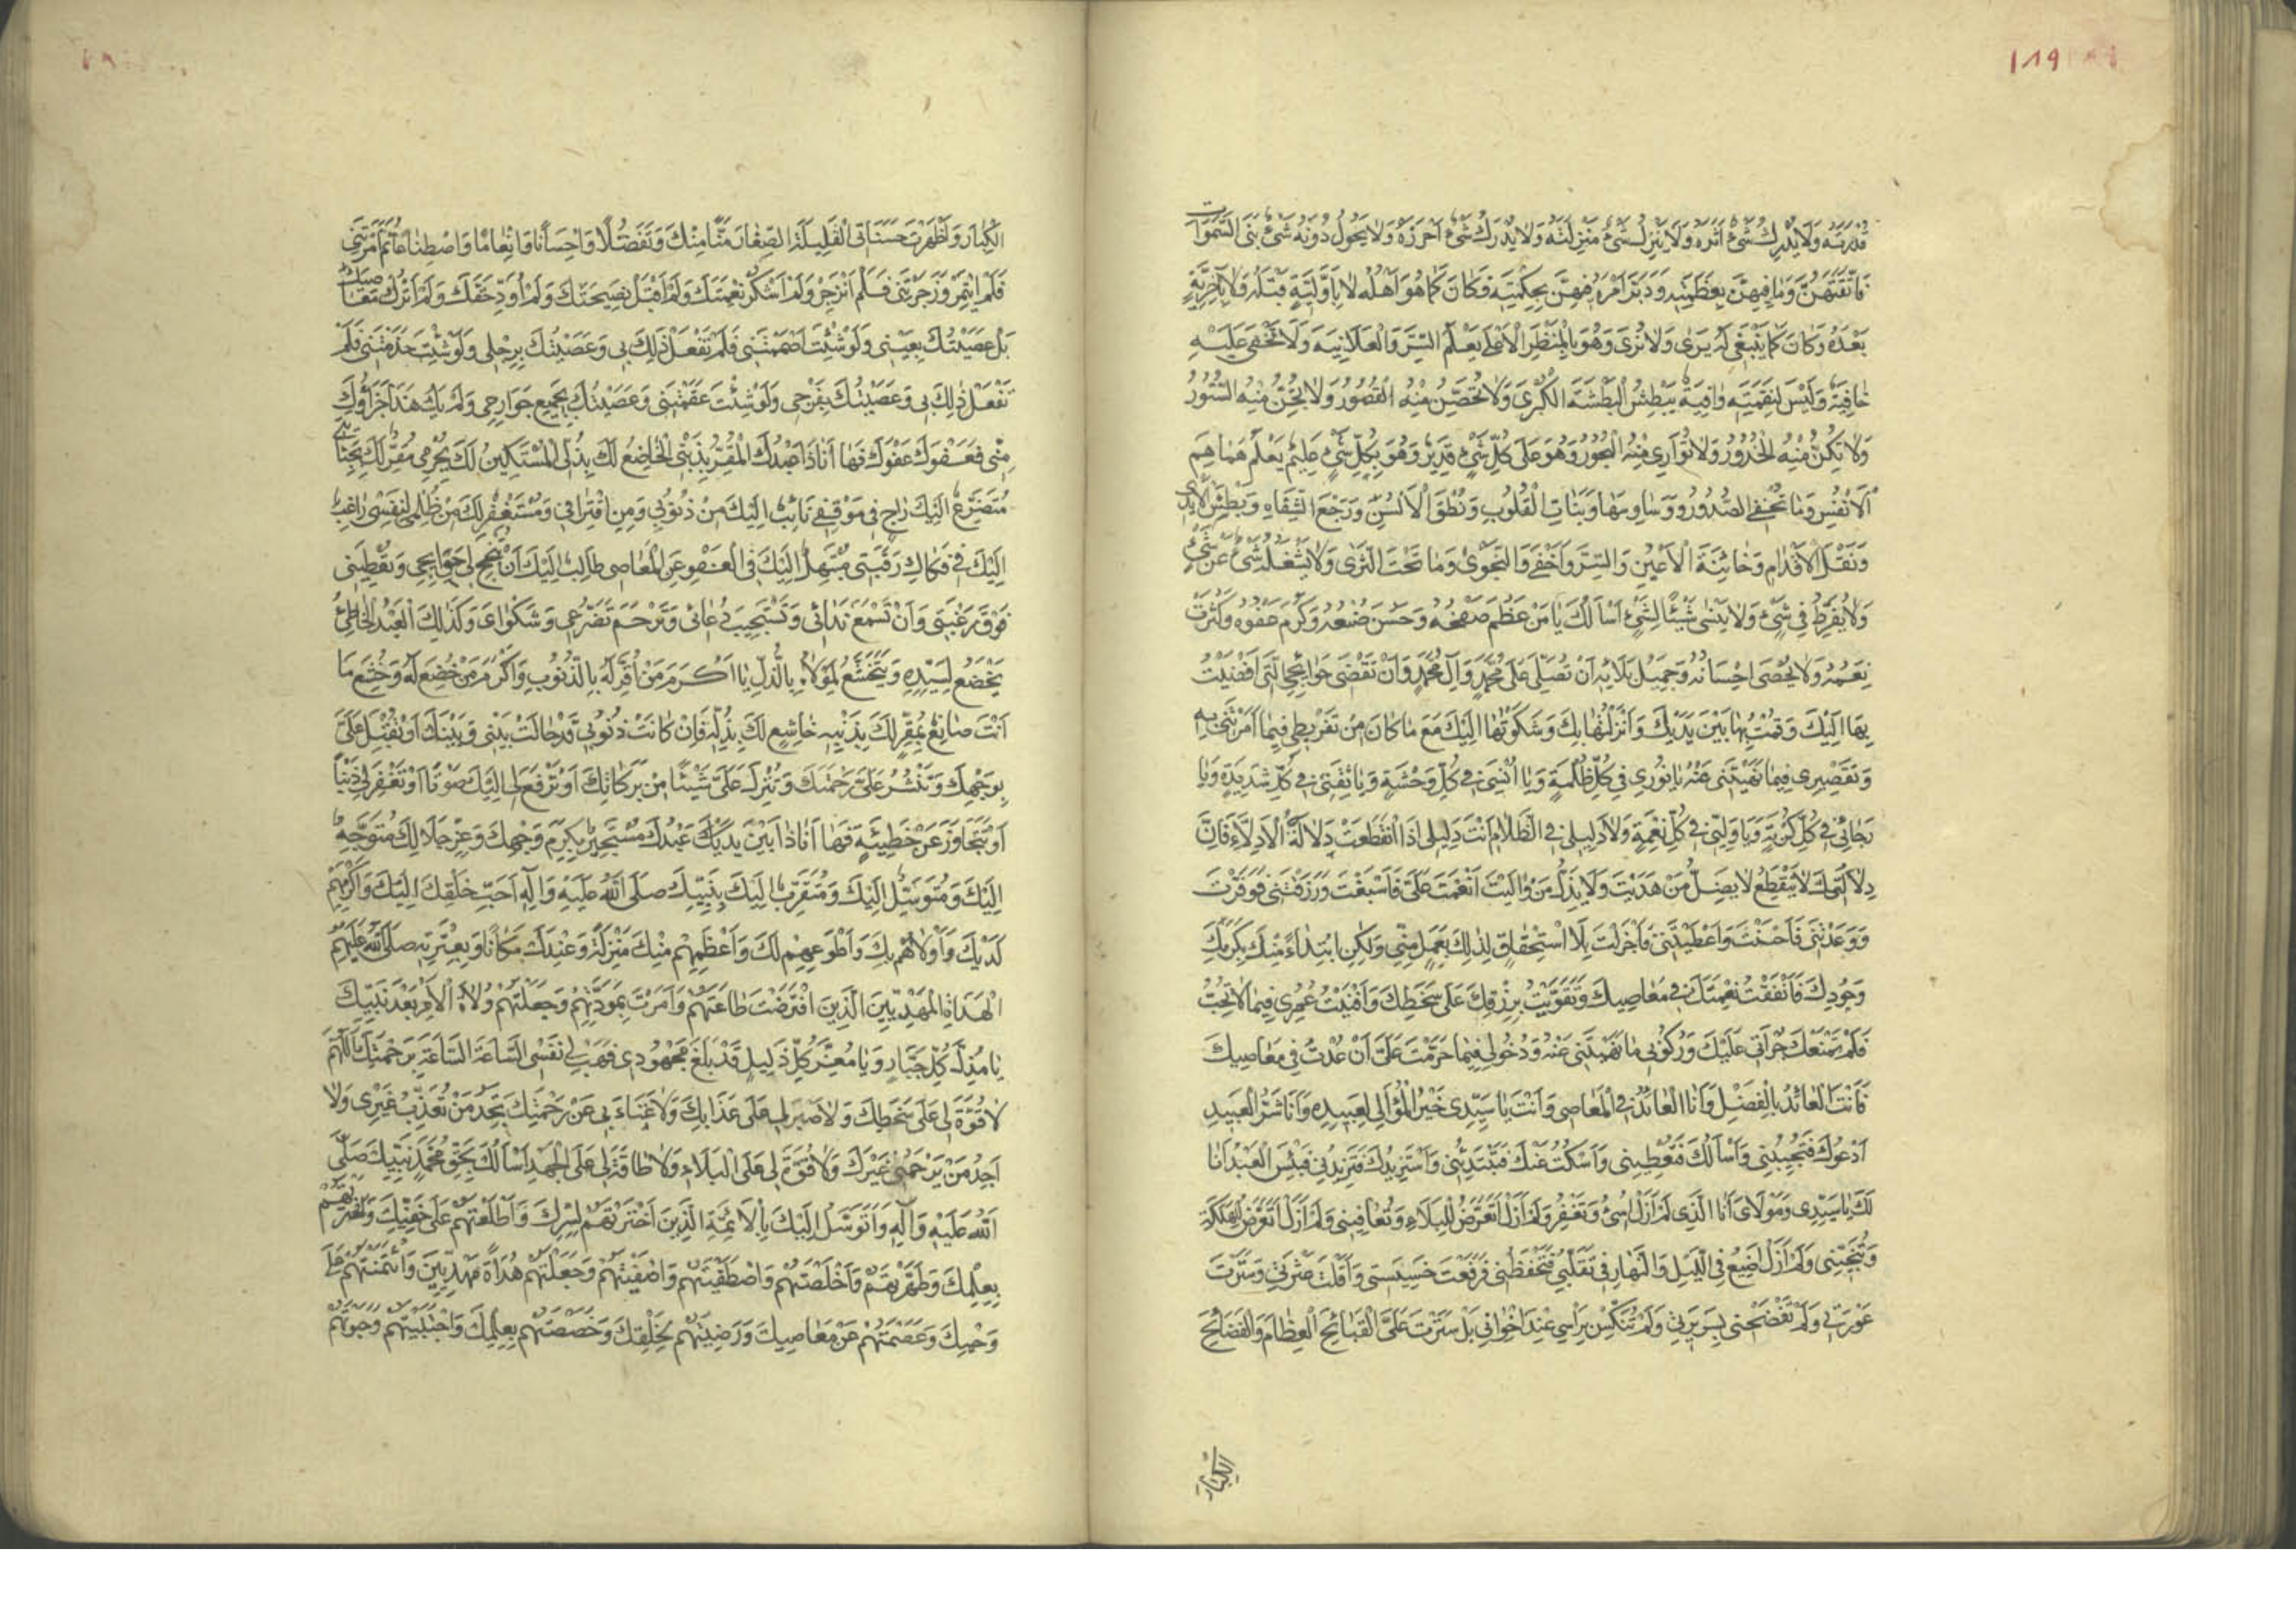 ١٨٩
قُدْرَتَهُ وَلَا يُدْرِكُ شَيْءٌ أَثَرَهُ وَلَا يَنْزِلُ شَيْءٌ مَنْزِلَتَهُ وَلَا يُدْرِكُ شَيْءٌ أَحْرَزَهُ وَلَا يَحُولُ دُونَهُ شَيْءٌ بَنَى السَّمٰوَاتِ
فَأَتْقَنَهُنَّ وَمَا فِيهِنَّ بِعَظَمَتِهِ وَدَبَّرَ أَمْرَهُ فِيهِنَّ بِحِكْمَتِهِ فَكَانَ كَمَا هُوَ أَهْلُهُ لَا بِأَوَّلِيَّةٍ قَبْلَهُ وَلَا بِآخِرِيَّةٍ
بَعْدَهُ وَكَانَ كَمَا يَنْبَغِي لَهُ يَرَى وَلَا يُرَى وَهُوَ بِالْمَنْظَرِ الْأَعْلَى يَعْلَمُ السِّرَّ وَالْعَلَانِيَةَ وَلَا تَخْفَى عَلَيْهِ
خَافِيَةٌ وَلَيْسَ لِنَقِمَتِهِ وَاقِيَةٌ يَبْطِشُ الْبَطْشَةَ الْكُبْرَى وَلَا تُحَصِّنُ مِنْهُ الْقُصُورُ وَلَا تُجِنُّ مِنْهُ السُّتُورُ
وَلَا تُكِنُّ مِنْهُ الْخُدُورُ وَلَا تُوَارِي مِنْهُ الْبُحُورُ وَهُوَ عَلَى كُلِّ شَيْءٍ قَدِيرٌ وَهُوَ بِكُلِّ شَيْءٍ عَلِيمٌ يَعْلَمُ هَمَاهِمَ
الْأَنْفُسِ وَمَا تُخْفِي الصُّدُورُ وَوَسَاوِسَهَا وَبَنَاتِ الْقُلُوبِ وَنُطْقَ الْأَلْسُنِ وَرَجْعَ الشِّفَاهِ وَبَطْشَ الْأَيْدِي
وَنَقْلَ الْأَقْدَامِ وَخَائِنَةَ الْأَعْيُنِ وَالسِّرَّ وَأَخْفَى وَالنَّجْوَى وَمَا تَحْتَ الثَّرَى وَلَا يَشْغَلُهُ شَيْءٌ عَنْ شَيْءٍ
وَلَا يُفَرِّطُ فِي شَيْءٍ وَلَا يَنْسَى شَيْئًا لِشَيْءٍ أَسْأَلُكَ يَا مَنْ عَظُمَ صَفْحُهُ وَحَسُنَ صُنْعُهُ وَكَرُمَ عَفْوُهُ وَكَثُرَتْ
نِعَمُهُ وَلَا يُحْصَى إِحْسَانُهُ وَجَمِيلُ بَلَائِهِ أَنْ تُصَلِّيَ عَلَى مُحَمَّدٍ وَآلِ مُحَمَّدٍ وَأَنْ تَقْضِيَ حَوَائِجِيَ الَّتِي أَفْضَيْتُ
بِهَا إِلَيْكَ وَقُمْتُ بِهَا بَيْنَ يَدَيْكَ وَأَنْزَلْتُهَا بِكَ وَشَكَوْتُهَا إِلَيْكَ مَعَ مَا كَانَ مِنْ تَفْرِيطِي فِيمَا أَمَرْتَنِي بِهِ
وَتَقْصِيرِي فِيمَا نَهَيْتَنِي عَنْهُ يَا نُورِي فِي كُلِّ ظُلْمَةٍ وَيَا أُنْسِي فِي كُلِّ وَحْشَةٍ وَيَا ثِقَتِي فِي كُلِّ شَدِيدَةٍ وَيَا
رَجَائِي فِي كُلِّ كُرْبَةٍ وَيَا وَلِيِّي فِي كُلِّ نِعْمَةٍ وَلَا دَلِيلِي فِي الظَّلَامِ أَنْتَ دَلِيلِي إِذَا انْقَطَعَتْ دَلَالَةُ الْأَدِلَّاءِ فَإِنَّ
دِلَالَتَكَ لَا يَنْقَطِعُ لَا يَضِلُّ مَنْ هَدَيْتَ وَلَا يَذِلُّ مَنْ وَالَيْتَ أَنْعَمْتَ عَلَيَّ فَأَسْبَغْتَ وَرَزَقْتَنِي فَوَفَّرْتَ
وَوَعَدْتَنِي فَأَحْسَنْتَ وَأَعْطَيْتَنِي فَأَجْزَلْتَ بِلَا اسْتِحْقَاقٍ لِذَلِكَ بِعَمَلٍ مِنِّي وَلَكِنِ ابْتِدَاءً مِنْكَ بِكَرَمِكَ
وَجُودِكَ فَأَنْفَقْتُ نِعْمَتَكَ فِي مَعَاصِيكَ وَتَقَوَّيْتُ بِرِزْقِكَ عَلَى سَخَطِكَ وَأَفْنَيْتُ عُمُرِي فِيمَا لَا تُحِبُّ
فَلَمْ تَمْنَعْكَ جُرْأَتِي عَلَيْكَ وَرُكُوبِي مَا نَهَيْتَنِي عَنْهُ وَدُخُولِي فِيمَا حَرَّمْتَ عَلَيَّ أَنْ عُدْتُ فِي مَعَاصِيكَ
فَأَنْتَ الْعَائِدُ بِالْفَضْلِ وَأَنَا الْعَائِدُ فِي الْمَعَاصِي وَأَنْتَ يَا سَيِّدِي خَيْرُ الْمَوَالِي لِعَبِيدِهِ وَأَنَا شَرُّ الْعَبِيدِ
أَدْعُوكَ فَتُجِيبُنِي وَأَسْأَلُكَ فَتُعْطِينِي وَأَسْكُتُ عَنْكَ فَتَبْتَدِئُنِي وَأَسْتَزِيدُكَ فَتَزِيدُنِي فَبِئْسَ الْعَبْدُ أَنَا
لَكَ يَا سَيِّدِي وَمَوْلَايَ أَنَا الَّذِي لَمْ أَزَلْ أُسِيءُ وَتَغْفِرُ وَلَمْ أَزَلْ أَتَعَرَّضُ لِلْبَلَاءِ وَتُعَافِينِي وَلَمْ أَزَلْ أَتَعَرَّضُ لِلْهَلَكَةِ
وَتُنْجِينِي وَلَمْ أَزَلْ أُضِيعُ فِي اللَّيْلِ وَالنَّهَارِ فِي تَقَلُّبِي فَتَحْفَظُنِي فَرَفَعْتَ خَسِيسَتِي وَأَقَلْتَ عَثْرَتِي وَسَتَرْتَ
عَوْرَتِي وَلَمْ تَفْضَحْنِي بِسَرِيرَتِي وَلَمْ تُنَكِّسْ بِرَأْسِي عِنْدَ إِخْوَانِي بَلْ سَتَرْتَ عَلَيَّ الْقَبَائِحَ الْعِظَامَ وَالْفَضَائِحَ
الْكِبَارَ
الْكِبَارَ وَأَظْهَرْتَ حَسَنَاتِي الْقَلِيلَةَ الصِّغَارَ مَنًّا مِنْكَ وَتَفَضُّلًا وَإِحْسَانًا وَإِنْعَامًا وَاصْطِنَاعًا ثُمَّ أَمَرْتَنِي
فَلَمْ أَئْتَمِرْ وَزَجَرْتَنِي فَلَمْ أَنْزَجِرْ وَلَمْ أَشْكُرْ نِعْمَتَكَ وَلَمْ أَقْبَلْ نَصِيحَتَكَ وَلَمْ أُؤَدِّ حَقَّكَ وَلَمْ أَتْرُكْ مَعَاصِيَكَ
بَلْ عَصَيْتُكَ بِعَيْنِي وَلَوْ شِئْتَ أَصْمَمْتَنِي فَلَمْ تَفْعَلْ ذَلِكَ بِي وَعَصَيْتُكَ بِرِجْلِي وَلَوْ شِئْتَ جَذَمْتَنِي فَلَمْ
تَفْعَلْ ذَلِكَ بِي وَعَصَيْتُكَ بِفَرْجِي وَلَوْ شِئْتَ عَقَمْتَنِي وَعَصَيْتُكَ بِجَمِيعِ جَوَارِحِي وَلَمْ يَكُ هَذَا جَزَاؤُكَ
مِنِّي فَعَفْوَكَ عَفْوَكَ فَهَا أَنَا ذَا عَبْدُكَ الْمُقِرُّ بِذَنْبِي الْخَاضِعُ لَكَ بِذُلِّي الْمُسْتَكِينُ لَكَ بِجُرْمِي مُقِرٌّ لَكَ بِجِنَايَتِي
مُتَضَرِّعٌ إِلَيْكَ رَاجٍ فِي مَوْقِفِي تَائِبٌ إِلَيْكَ مِنْ ذُنُوبِي وَمِنِ اقْتِرَافِي وَمُسْتَغْفِرٌ لَكَ مِنْ ظُلْمِي لِنَفْسِي رَاغِبٌ
إِلَيْكَ فِي فَكَاكِ رَقَبَتِي مُبْتَهِلٌ إِلَيْكَ فِي الْعَفْوِ عَنِ الْمَعَاصِي طَالِبٌ إِلَيْكَ أَنْ تُنْجِحَ لِي حَوَائِجِي وَتُعْطِيَنِي
فَوْقَ رَغْبَتِي وَأَنْ تَسْمَعَ نِدَائِي وَتَسْتَجِيبَ دُعَائِي وَتَرْحَمَ تَضَرُّعِي وَشَكْوَايَ وَكَذَلِكَ الْعَبْدُ الْخَاطِئُ
يَخْضَعُ لِسَيِّدِهِ وَيَتَخَشَّعُ لِمَوْلَاهُ بِالذُّلِّ يَا أَكْرَمَ مَنْ أُقِرَّ لَهُ بِالذُّنُوبِ وَأَكْرَمَ مَنْ خُضِعَ لَهُ وَخُشِعَ مَا
أَنْتَ صَانِعٌ بِمُقِرٍّ لَكَ بِذَنْبِهِ خَاشِعٍ لَكَ بِذُلِّهِ فَإِنْ كَانَتْ ذُنُوبِي قَدْ حَالَتْ بَيْنِي وَبَيْنَكَ أَوْ تُقْبِلَ عَلَيَّ
بِوَجْهِكَ وَتَنْشُرَ عَلَيَّ رَحْمَتَكَ وَتُنْزِلَ عَلَيَّ شَيْئًا مِنْ بَرَكَاتِكَ أَوْ تَرْفَعَ لِي إِلَيْكَ صَوْتًا أَوْ تَغْفِرَ لِي ذَنْبًا
أَوْ تَتَجَاوَزَ عَنْ خَطِيئَةٍ فَهَا أَنَا ذَا بَيْنَ يَدَيْكَ عَبْدُكَ مُسْتَجِيرٌ بِكَرَمِ وَجْهِكَ وَعِزِّ جَلَالِكَ مُتَوَجِّهٌ
إِلَيْكَ وَمُتَوَسِّلٌ إِلَيْكَ وَمُتَقَرِّبٌ إِلَيْكَ بِنَبِيِّكَ صَلَّى اللهُ عَلَيْهِ وَآلِهِ أَحَبِّ خَلْقِكَ إِلَيْكَ وَأَكْرَمِهِمْ
لَدَيْكَ وَأَوْلَاهُمْ بِكَ وَأَطْوَعِهِمْ لَكَ وَأَعْظَمِهِمْ مِنْكَ مَنْزِلَةً وَعِنْدَكَ مَكَانًا وَبِعِتْرَتِهِ صَلَّى اللهُ عَلَيْهِمُ
الْهُدَاةِ الْمَهْدِيِّينَ الَّذِينَ افْتَرَضْتَ طَاعَتَهُمْ وَأَمَرْتَ بِمَوَدَّتِهِمْ وَجَعَلْتَهُمْ وُلَاةَ الْأَمْرِ بَعْدَ نَبِيِّكَ
يَا مُذِلَّ كُلِّ جَبَّارٍ وَيَا مُعِزَّ كُلِّ ذَلِيلٍ قَدْ بَلَغَ مَجْهُودِي فَهَبْ لِي نَفْسِي السَّاعَةَ السَّاعَةَ بِرَحْمَتِكَ اللَّهُمَّ
لَا قُوَّةَ لِي عَلَى سَخَطِكَ وَلَا صَبْرَ لِي عَلَى عَذَابِكَ وَلَا غَنَاءَ بِي عَنْ رَحْمَتِكَ تَجِدُ مَنْ تُعَذِّبُ غَيْرِي وَلَا
أَجِدُ مَنْ يَرْحَمُنِي غَيْرَكَ وَلَا قُوَّةَ لِي عَلَى الْبَلَاءِ وَلَا طَاقَةَ لِي عَلَى الْجَهْدِ أَسْأَلُكَ بِحَقِّ مُحَمَّدٍ نَبِيِّكَ صَلَّى
اللهُ عَلَيْهِ وَآلِهِ وَأَتَوَسَّلُ إِلَيْكَ بِالْأَئِمَّةِ الَّذِينَ اخْتَرْتَهُمْ لِسِرِّكَ وَأَطْلَعْتَهُمْ عَلَى خَفِيِّكَ وَاخْتَرْتَهُمْ
بِعِلْمِكَ وَطَهَّرْتَهُمْ وَأَخْلَصْتَهُمْ وَاصْطَفَيْتَهُمْ وَأَصْفَيْتَهُمْ وَجَعَلْتَهُمْ هُدَاةً مَهْدِيِّينَ وَائْتَمَنْتَهُمْ عَلَى
وَحْيِكَ وَعَصَمْتَهُمْ عَنْ مَعَاصِيكَ وَرَضِيتَهُمْ لِخَلْقِكَ وَخَصَصْتَهُمْ بِعِلْمِكَ وَاجْتَبَيْتَهُمْ وَحَبَوْتَهُمْ